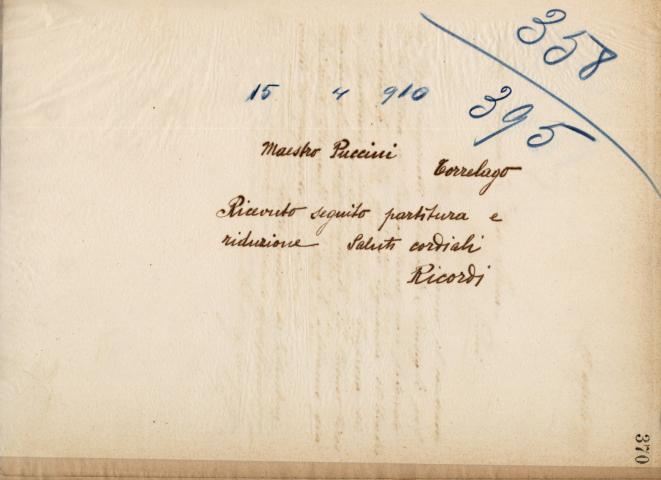 358
395
15 4 910
Maestro Puccini
Torrelago
Ricevuto seguito partitura e
riduzione Saluti cordiali
Ricordi
370